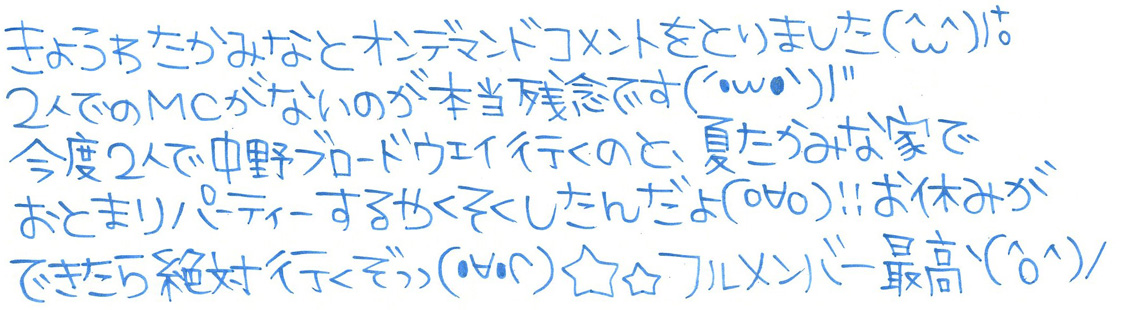 きょうちたかみなとオンデマンドコメントをとりました(^ω^)/。
2人でのMCがないのが本当残念です(´•ω•`)/"
今度2人で中野ブロードウェイ行くのと、夏たかみな家で
おとまりパーティーするやくそくしたんだよ(o∀o)!!お休みが
できたら絶対行くぞっっ(•∀•)☆☆フルメンバー最高\(^o^)/